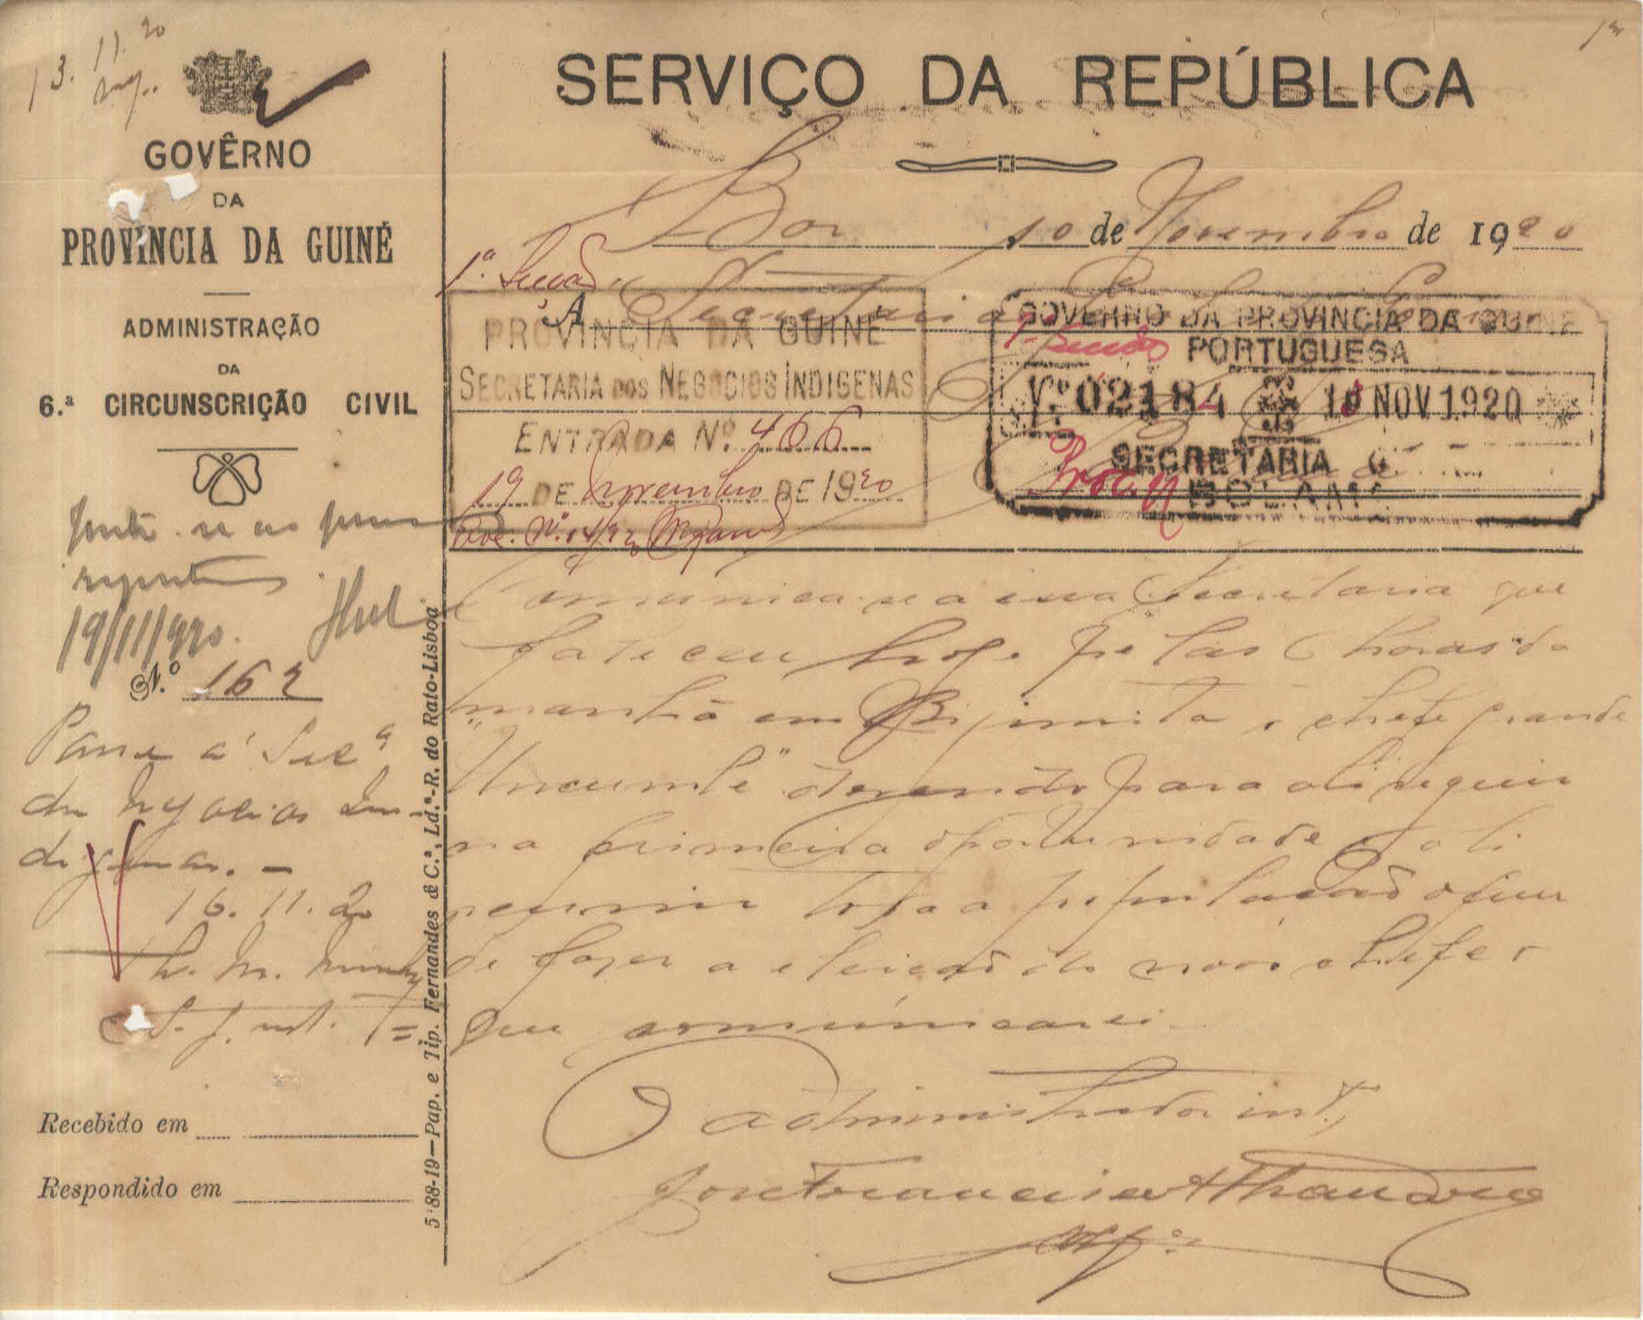 13.11.20
GOVÊRNO
DA
PROVÍNCIA DA GUINÉ
ADMINISTRAÇÃO
DA
6.ª CIRCUNSCRIÇÃO CIVIL
Junte-se ao
19/11/920.
N.º 162
Passe á Sec.ª
dos Negocios In-
digenas. -
16.11.20
Recebido em
Respondido em
5:88-19—Pap. e Tip. Fernandes & C.ª, Ld.ª-R. do Rato-Lisboa
SERVIÇO DA REPÚBLICA
Bor 10 de Novembro de 1920
1.ª Secção
A Secretaria
PROVINCIA DA GUINÉ
SECRETARIA DOS NEGOCIOS INDIGENAS
ENTRADA Nº. 466
19 DE Novembro DE 1920
GOVERNO DA PROVINCIA DA GUINÉ
PORTUGUESA
1.ª Secção
Nº 02184 NOV 1920
SECRETARIA
BOLAMA
Comunica-se a essa Secretaria que
faleceu hoje pelas 6 horas da
manhã em Bijimita o chefe grande
"Uncumle" devendo para ali seguir
na primeira oportunidade e ali
reunir toda a população a fim
de fazer a eleição do novo chefe o
que comunicarei.
O administrador int.,
José Francisco